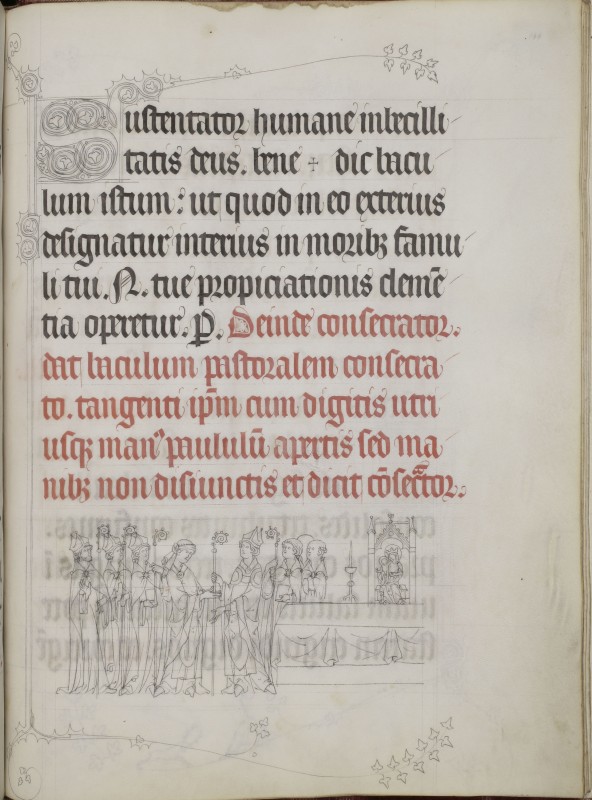 Sustentator humane inbecilli
tatis deus. bene + dic bacu
lum istum: ut quod in eo exterius
designatur interius in morib3 famu
li tui. N. tue propiciationis clemē
tia operetur. P. Deinde consecrator.
dat baculum pastoralem consecra
to. tangenti ip̄m cum digitis utri
usq3 man9 paululū apertis sed ma
nib3 non disiunctis et dicit cōsecrator.